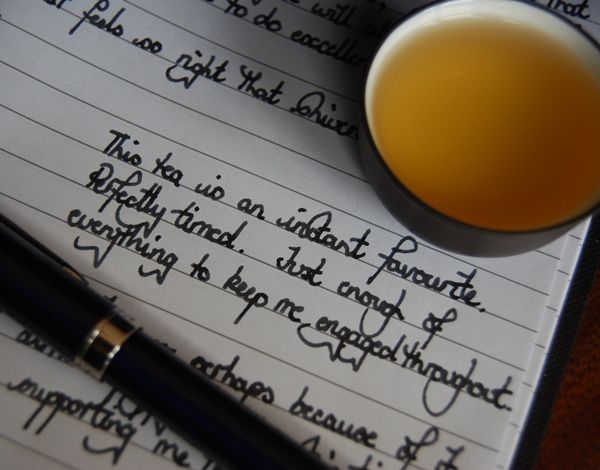 with
that
to do excellen
feels so right that driven
This tea is an instant favourite.
Perfectly timed. Just enough of
everything to keep me engaged throughout.
perhaps because of I
supporting me